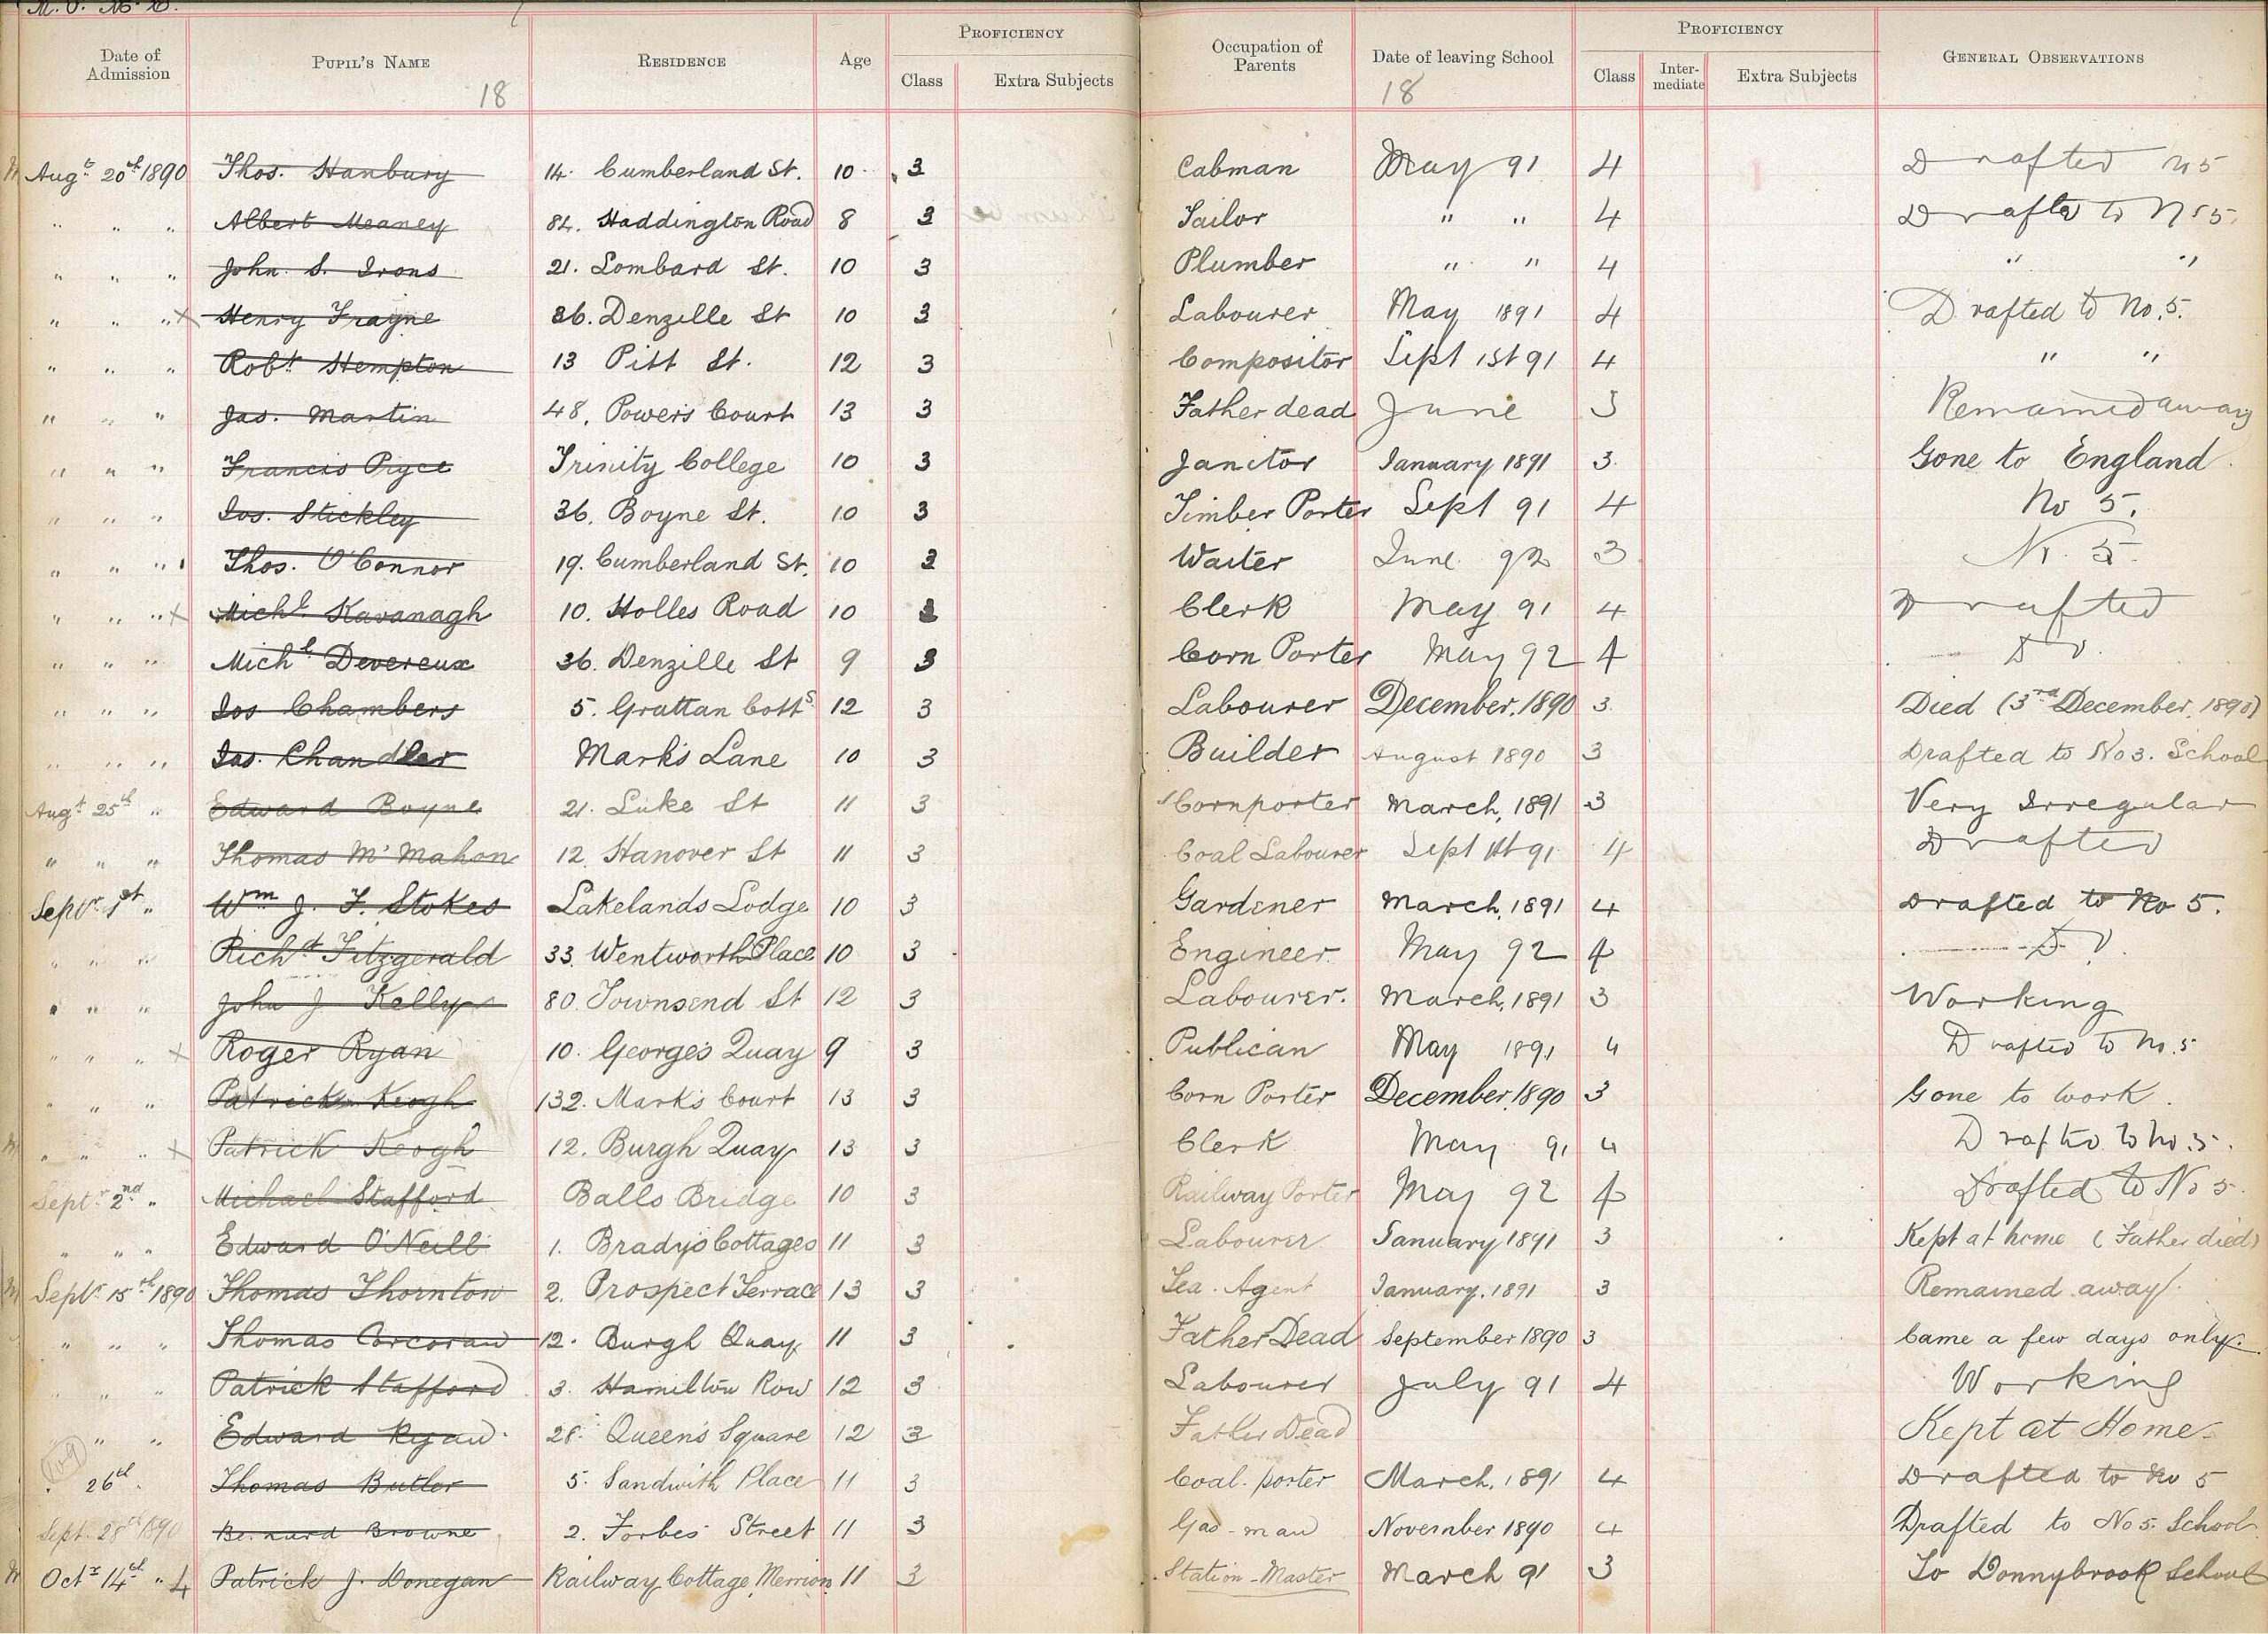 M. V. No. 2.
Date of Admission PUPIL'S NAME RESIDENCE Age PROFICIENCY Class Extra Subjects Occupation of Parents Date of leaving School PROFICIENCY Class Inter-mediate Extra Subjects GENERAL OBSERVATIONS
18 18
Augt 20th 1890 Thos. Hanbury 14. Cumberland St. 10 3 Cabman May 91 4 Drafted no 5
" " " Albert Meaney 84. Haddington Road 8 3 Tailor " " 4 Drafted to No 5.
" " " John. S. Irons 21. Lombard St. 10 3 Plumber " " 4 " "
" " " x Henry Frayne 36. Denzille St 10 3 Labourer May 1891 4 Drafted to No. 5.
" " " Robt Hempton 13 Pitt St. 12 3 Compositor Sept 1st 91 4 " "
" " " Jas. Martin 48, Power's Court 13 3 Father dead June 3 Remained away
" " " Francis Pryce Trinity College 10 3 Janitor January 1891 3. Gone to England.
" " " Jos. Stickley 36. Boyne St. 10 3 Timber Porter Sept 91 4 No 5.
" " " Thos. O'Connor 19. Cumberland St. 10 3 Waiter June 92 3 No. 5.
" " " x Michl Kavanagh 10. Holles Road 10 3 Clerk May 91 4 Drafted
" " " Michl Devereux 36. Denzille St 9 3 Corn Porter May 92 4 Do.
" " " Jos Chambers 5. Grattan Cotts 12 3 Labourer December, 1890 3. Died (3rd December, 1890)
" " " Jas. Chandler Mark's Lane 10 3 Builder August 1890 3 Drafted to No 3. School
Augt 25th " Edward Boyne 21. Luke St 11 3 Cornporter March, 1891 3 Very Irregular
" " " Thomas McMahon 12. Hanover St 11 3 Coal Labourer Sept 1st 91 4 Drafted
Septr 1st " Wm J. F. Stokes Lakelands Lodge 10 3 Gardener March, 1891 4 Drafted to No 5.
" " " Richd Fitzgerald 33. Wentworth Place 10 3 Engineer May 92 4 Do.
" " " John J Kelly 80. Townsend St 12 3 Labourer. March, 1891 3 Working
" " " x Roger Ryan 10. George's Quay 9 3 Publican May 1891 4 Drafted to No. 5
" " " Patrick Keogh 132. Mark's Court 13 3 Corn Porter December, 1890 3 Gone to work.
" " " x Patrick Keogh 12. Burgh Quay 13 3 Clerk May 91 4 Drafted to No. 5.
Septr 2nd " Michael Stafford Balls Bridge 10 3 Railway Porter May 92 4 Drafted to No 5.
" " " Edward O'Neill 1. Brady's Cottages 11 3 Labourer January 1891 3 Kept at home (Father died)
Septr 15th 1890 Thomas Thornton 2. Prospect Terrace 13 3 Tea. Agent January, 1891 3 Remained away.
" " " Thomas Corcoran 12. Burgh Quay 11 3 Father Dead September 1890 3 Came a few days only.
" " " Patrick Stafford 3. Hamilton Row 12 3 Labourer July 91 4 Working
" " Edward Ryan 28. Queen's Square 12 3 Father Dead Kept at Home
" 26th " Thomas Butler 5. Sandwith Place 11 3 Coal. porter March, 1891 4 Drafted to No 5
Sept. 28th 1890 Bernard Browne 2. Forbes Street 11 3 Gas-man November 1890 4 Drafted to No 5. School
Octr 14th " 4 Patrick J. Donegan Railway Cottage, Merrion 11 3 Station-Master March 91 3 To Donnybrook School